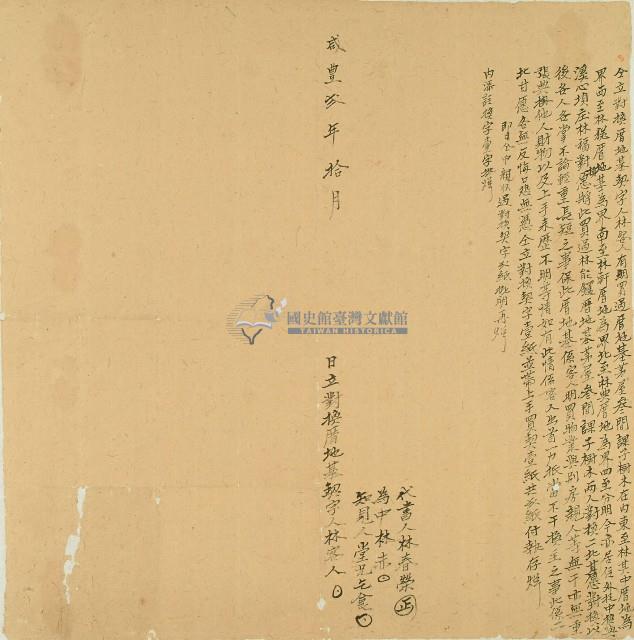 仝立對換厝地基契字人林客人有明買過厝地基茅屋叁間課子樹木在內東至林其中厝地為
界西至林糕厝地基為界南至林軒厝地為界北至林典厝地為界四至分明今亦居住外托中
溪心埧庄林福對恩將此買過林能厝地基茅屋叁間課子樹木兩人對換二比甘愿對換以
後各人各掌不論輕重長短之事保此厝地基係客人明買物業與別房親人等無干亦無重
張典掛他人財物以及上手來歷不明等情如有此情係客人出首一力抵當不干換主之事此係二
比甘愿各無反悔口恐無憑仝立對換契字壹紙並帶上手買契壹紙共弍紙付執存炤
即日仝中親收過對換契字弍紙批明再炤
內添註換字壹字批炤
代書人林春榮
為中林赤
知見人堂兄
咸豐弍年拾月 日立對換厝地基契字人林客人
國史館臺灣文獻館
TAIWAN HISTORICA